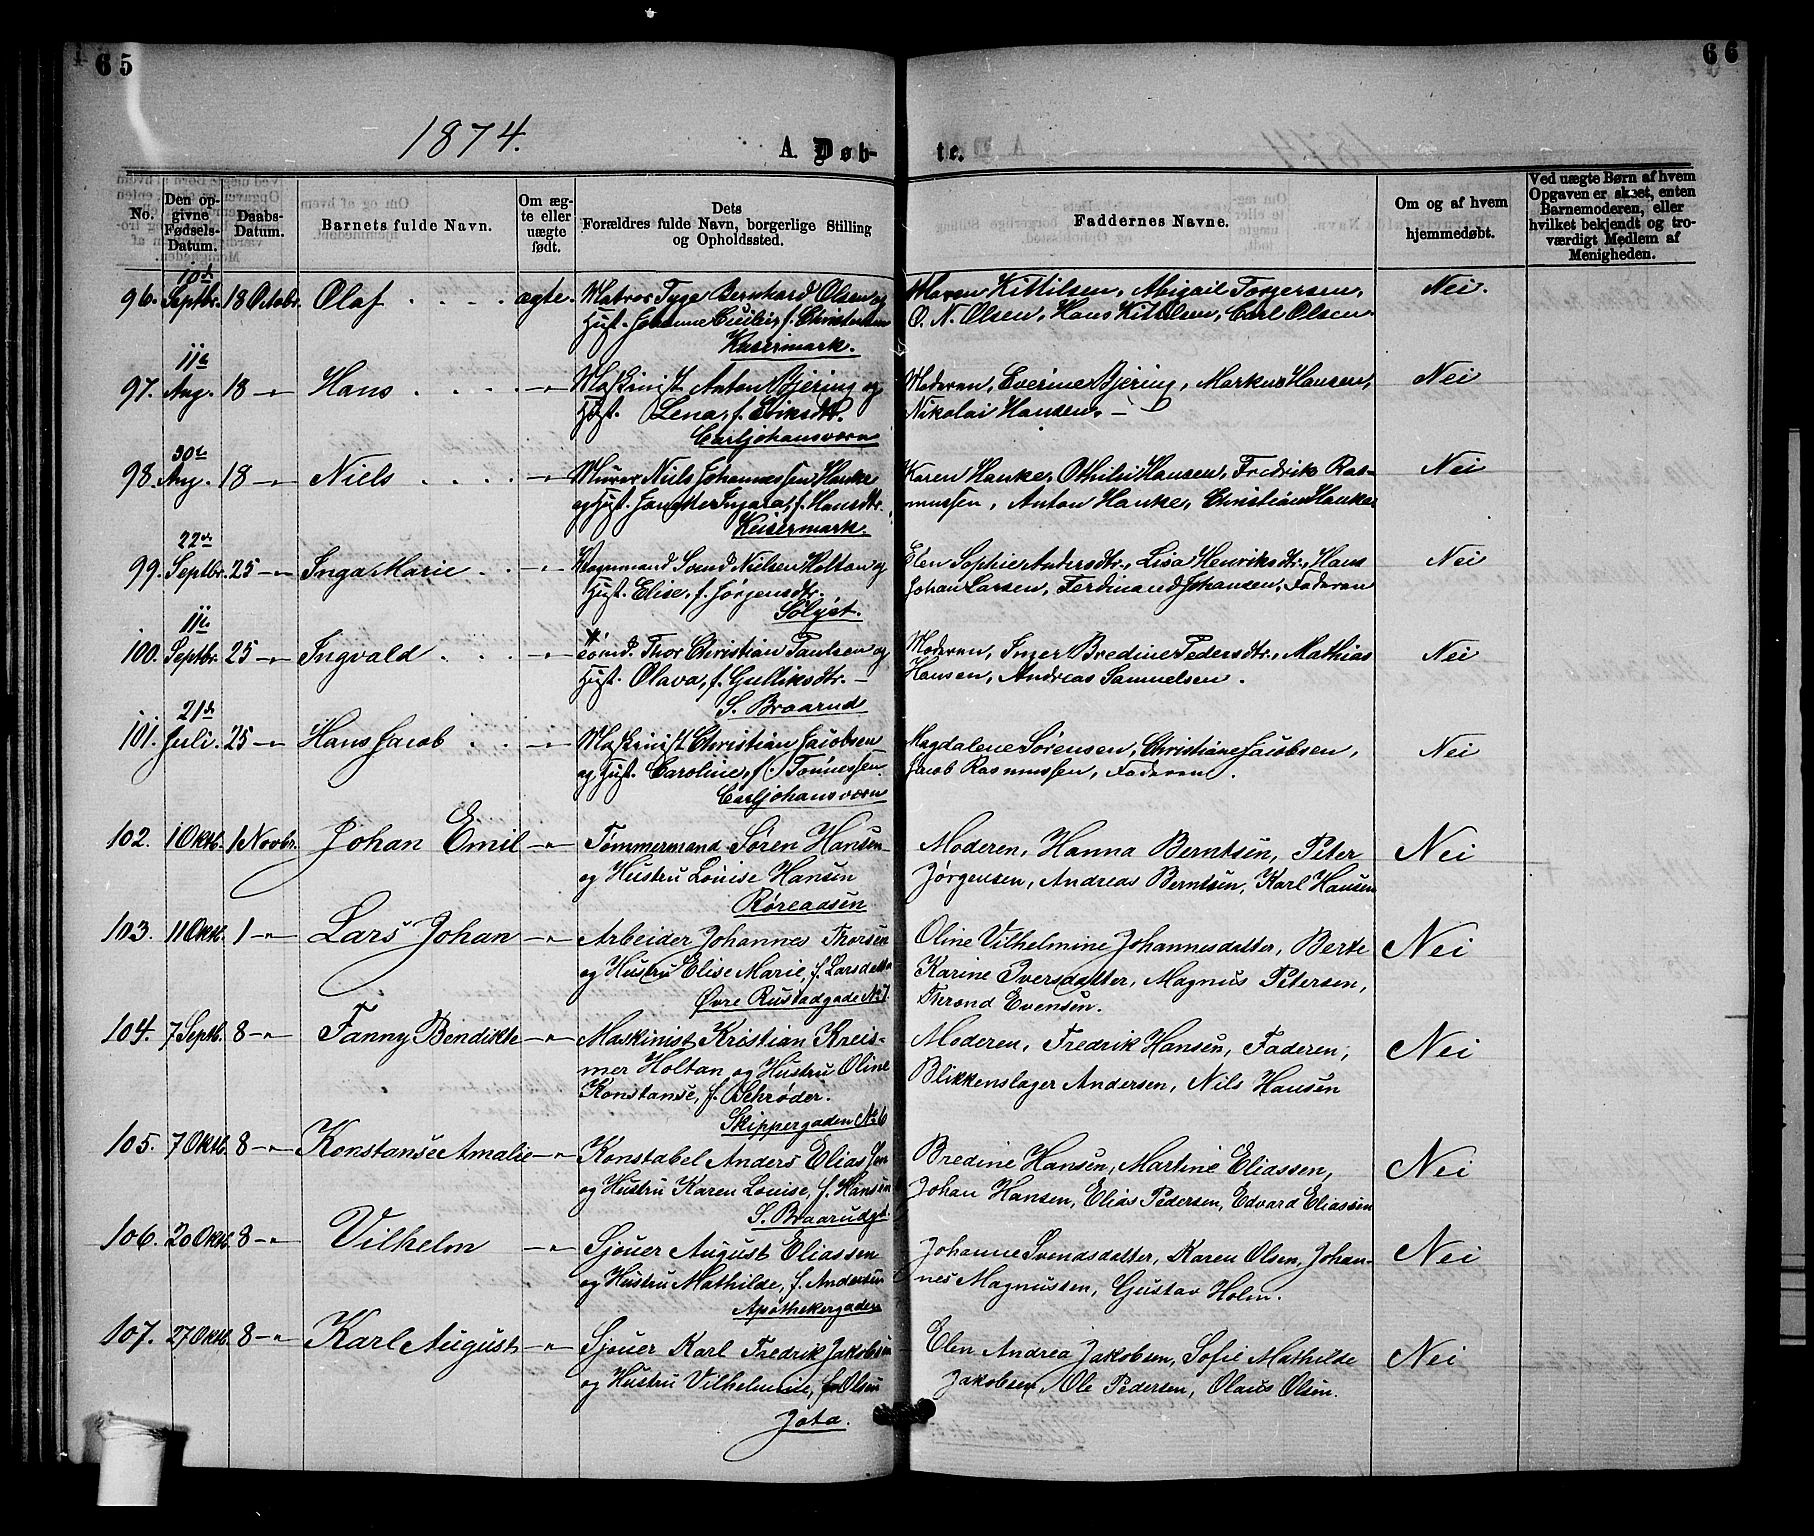 65
66
1874.
A. Døb-
te.
No.
Den op-
givne
Fødsels-
Datum.
Daabs-
Datum.
Barnets fulde Navn.
Om æg-
te eller
uægte
født.
Dets
Forældres fulde Navn, borgerlige Stilling
og Opholdssted.
Faddernes Navne.
Om og af hvem
hjemmedøbt.
Ved uægte Børn af hvem
Opgaven er skeet, enten
Barnemoderen, eller
hvilket bekjendt og tro-
værdigt Medlem af
Menigheden.
96. Septbr. 18 Octobr. Olaf ægte. Matros Tyge Bernhard Olsen og
Hust. Johanne f.
Maren Kittilsen, Abigail Torgersen,
O. N. Olsen, Hans Kittilsen, Carl Olsen
Nei.
97. 11te Aug. 18 -"- Hans -"- Maskinist Anton Bjering og
Hust. Lena, f. Eriksdtr.
Carljohansværn
Moderen, Everine Bjering, Markus Hansen,
Nikolai Hansen. -
Nei
98. 30te Aug. 18 -"- Niels -"- Murer Niels Johannessen Hanke
og Hust. Ingara, f. Hansdtr.
Keisermark.
Karen Hanke, Othilie Hansen, Fredrik Ras-
mussen, Anton Hanke, Christian Hanke
Nei
99. 22de Septbr. 25 -"- Inga Marie -"- Vognmand Svend Nielsen Holtan og
Hust. Elise, f. Jørgensdtr.
Sølyst.
Elen Sophie Andersdtr., Lisa Henriksdtr., Hans
Johan Larsen, Ferdinand Johansen, Faderen
Nei
100. 11te Septbr. 25 -"- Ingvald -"- Tømd. Thor Christian Paulsen og
Hust. Olava, f. Gulliksdtr. -
S. Braarud
Moderen, Inger Bredine Pedersdtr., Mathias
Hansen, Andreas Samuelsen.
Nei
101. 21de Juli. 25 -"- Hans Jacob -"- Maskinist Christian Jacobsen
og Hust. Caroline, f. Tønnessen.
Carljohansværn
Magdalene Sørensen, Christiane Jacobsen,
Jacob Rasmussen, Faderen.
Nei
102. 1 Oktb. 1 Novbr. Johan Emil -"- Tømmermand Søren Hansen
og Hustru Louise Hansen
Røreaasen
Moderen, Hanna Berntsen, Peter
Jørgensen, Andreas Berntsen, Karl Hansen
Nei
103. 11 Oktb. 1 -"- Lars Johan -"- Arbeider Johannes Thorsen
og Hustru Elise Marie, f. Larsdatter
Øvre Rustadgade No. 7
Oline Vilhelmine Johannesdatter, Berte
Karine Iversdatter, Magnus Petersen,
Thrond Evensen.
Nei
104. 7 Septb. 8 -"- Fanny Bendikte -"- Maskinist Kristian Kreis-
mer Holtan og Hustru Oline
Konstanse, f. Schrøder.
Skippergaden No. 6
Moderen, Fredrik Hansen, Faderen,
Blikkenslager Andersen, Nils Hansen
Nei
105. 7 Oktb. 8 -"- Konstanse Amalie -"- Konstabel Anders Eliassen
og Hustru Karen Louise, f. Hansen
S. Braarudgt.
Bredine Hansen, Martine Eliassen,
Johan Hansen, Elias Pedersen, Edvard Eliassen
Nei
106. 20 Oktb. 8 -"- Vilhelm -"- Sjouer August Eliassen
og Hustru Mathilde, f. Andersen
Apothekergaden
Johanne Svendsdatter, Karen Olsen, Johan-
nes Magnussen, Gustav Holm.
Nei
107. 27 Oktb. 8 -"- Karl August -"- Sjouer Karl Fredrik Jakobsen
og Hustru Vilhelmine, f. Olsen
Jata.
Elen Andrea Jakobsen, Sofie Mathilde
Jakobsen, Ole Pedersen, Olaus Olsen.
Nei